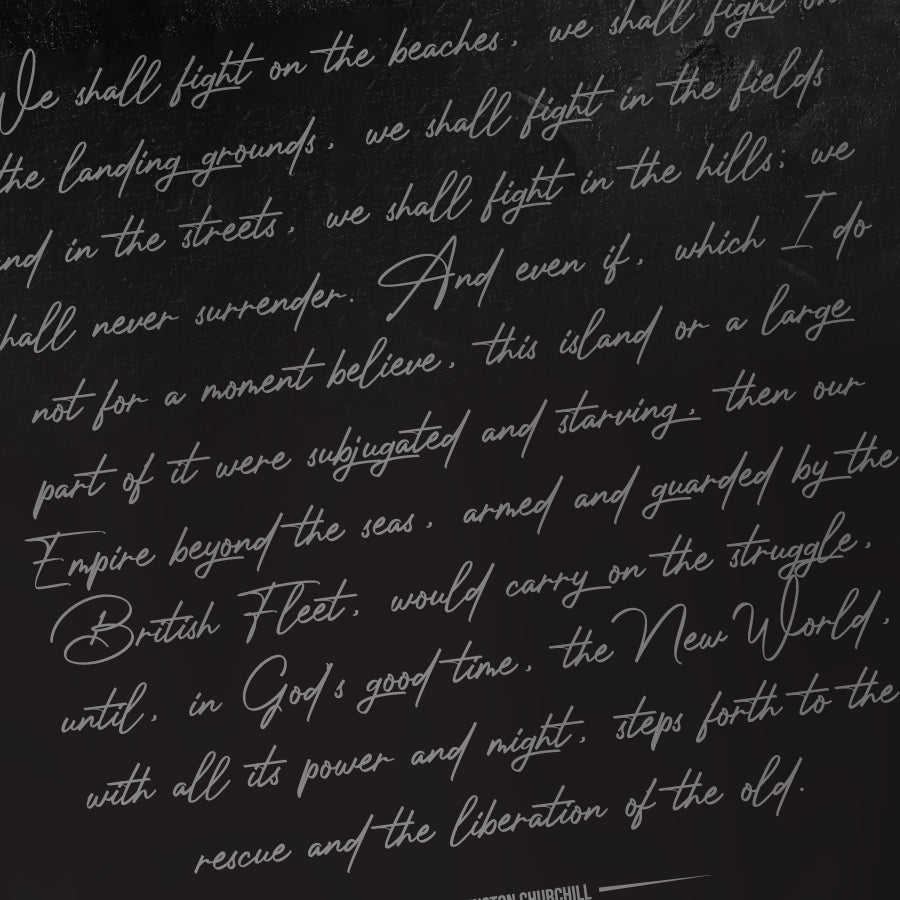 We shall fight on the beaches, we shall fight on
the landing grounds, we shall fight in the fields
and in the streets, we shall fight in the hills; we
shall never surrender. And even if, which I do
not for a moment believe, this island or a large
part of it were subjugated and starving, then our
Empire beyond the seas, armed and guarded by the
British Fleet, would carry on the struggle,
until, in God's good time, the New World,
with all its power and might, steps forth to the
rescue and the liberation of the old.
CHURCHILL